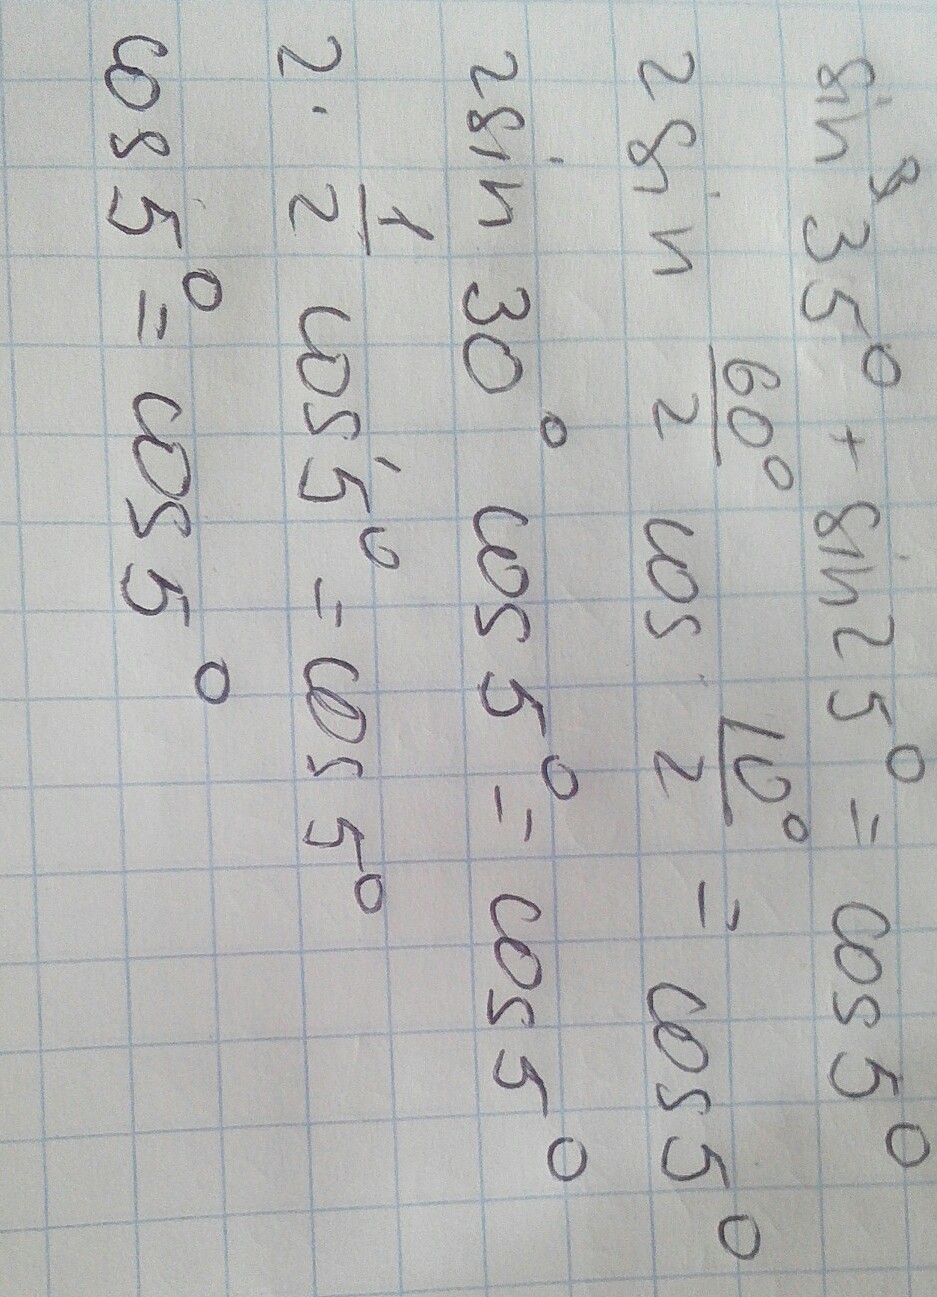 sin 35° + sin 25° = cos 5°
2 sin 60°/2 cos 10°/2 = cos 5°
2 sin 30° cos 5° = cos 5°
2 · 1/2 cos 5° = cos 5°
cos 5° = cos 5°